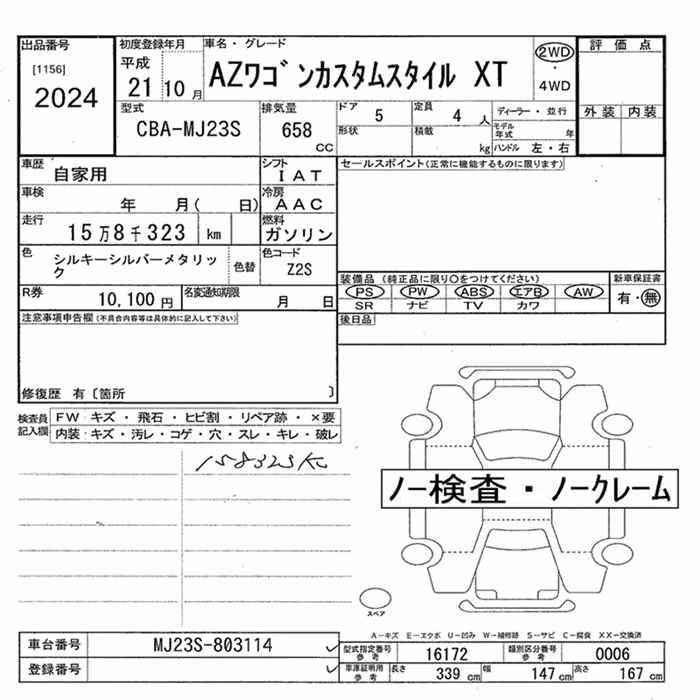 出品番号
[1156]
2024
初度登録年月
平成
21 10 月
車名・グレード
AZワゴンカスタムスタイル XT
2WD
・
4WD
評価点
外装 内装
型式
CBA-MJ23S
排気量
658
CC
ドア
5
定員
4 人
形状
積載
kg
ディーラー・並行
モデル年式 年
ハンドル 左・右
車歴
自家用
シフト
IAT
車検
年 月( 日)
冷房
AAC
走行
15万8千323 km
燃料
ガソリン
色
シルキーシルバーメタリック
色替
色コード
Z2S
R券
10,100 円
名変通知期限
月 日
セールスポイント(正常に機能するものに限ります)
装備品 (純正品に限り○をつけてください)
PS PW ABS エアB AW
SR ナビ TV カワ
新車保証書
有・無
後日品
注意事項申告欄(不具合内容等は具体的に記入して下さい)
修復歴 有〔箇所 〕
検査員記入欄
FW キズ・飛石・ヒビ割・リペア跡・×要
内装 キズ・汚レ・コゲ・穴・スレ・キレ・破レ
158323K
ノー検査・ノークレーム
スペア
A-キズ E-エクボ U-凹み W-補修跡 S-サビ C-腐食 XX-交換済
車台番号
MJ23S-803114
登録番号
型式指定番号
参考
16172
類別区分番号
参考
0006
車庫証明用
参考
長さ
339 cm
幅
147 cm
高さ
167 cm